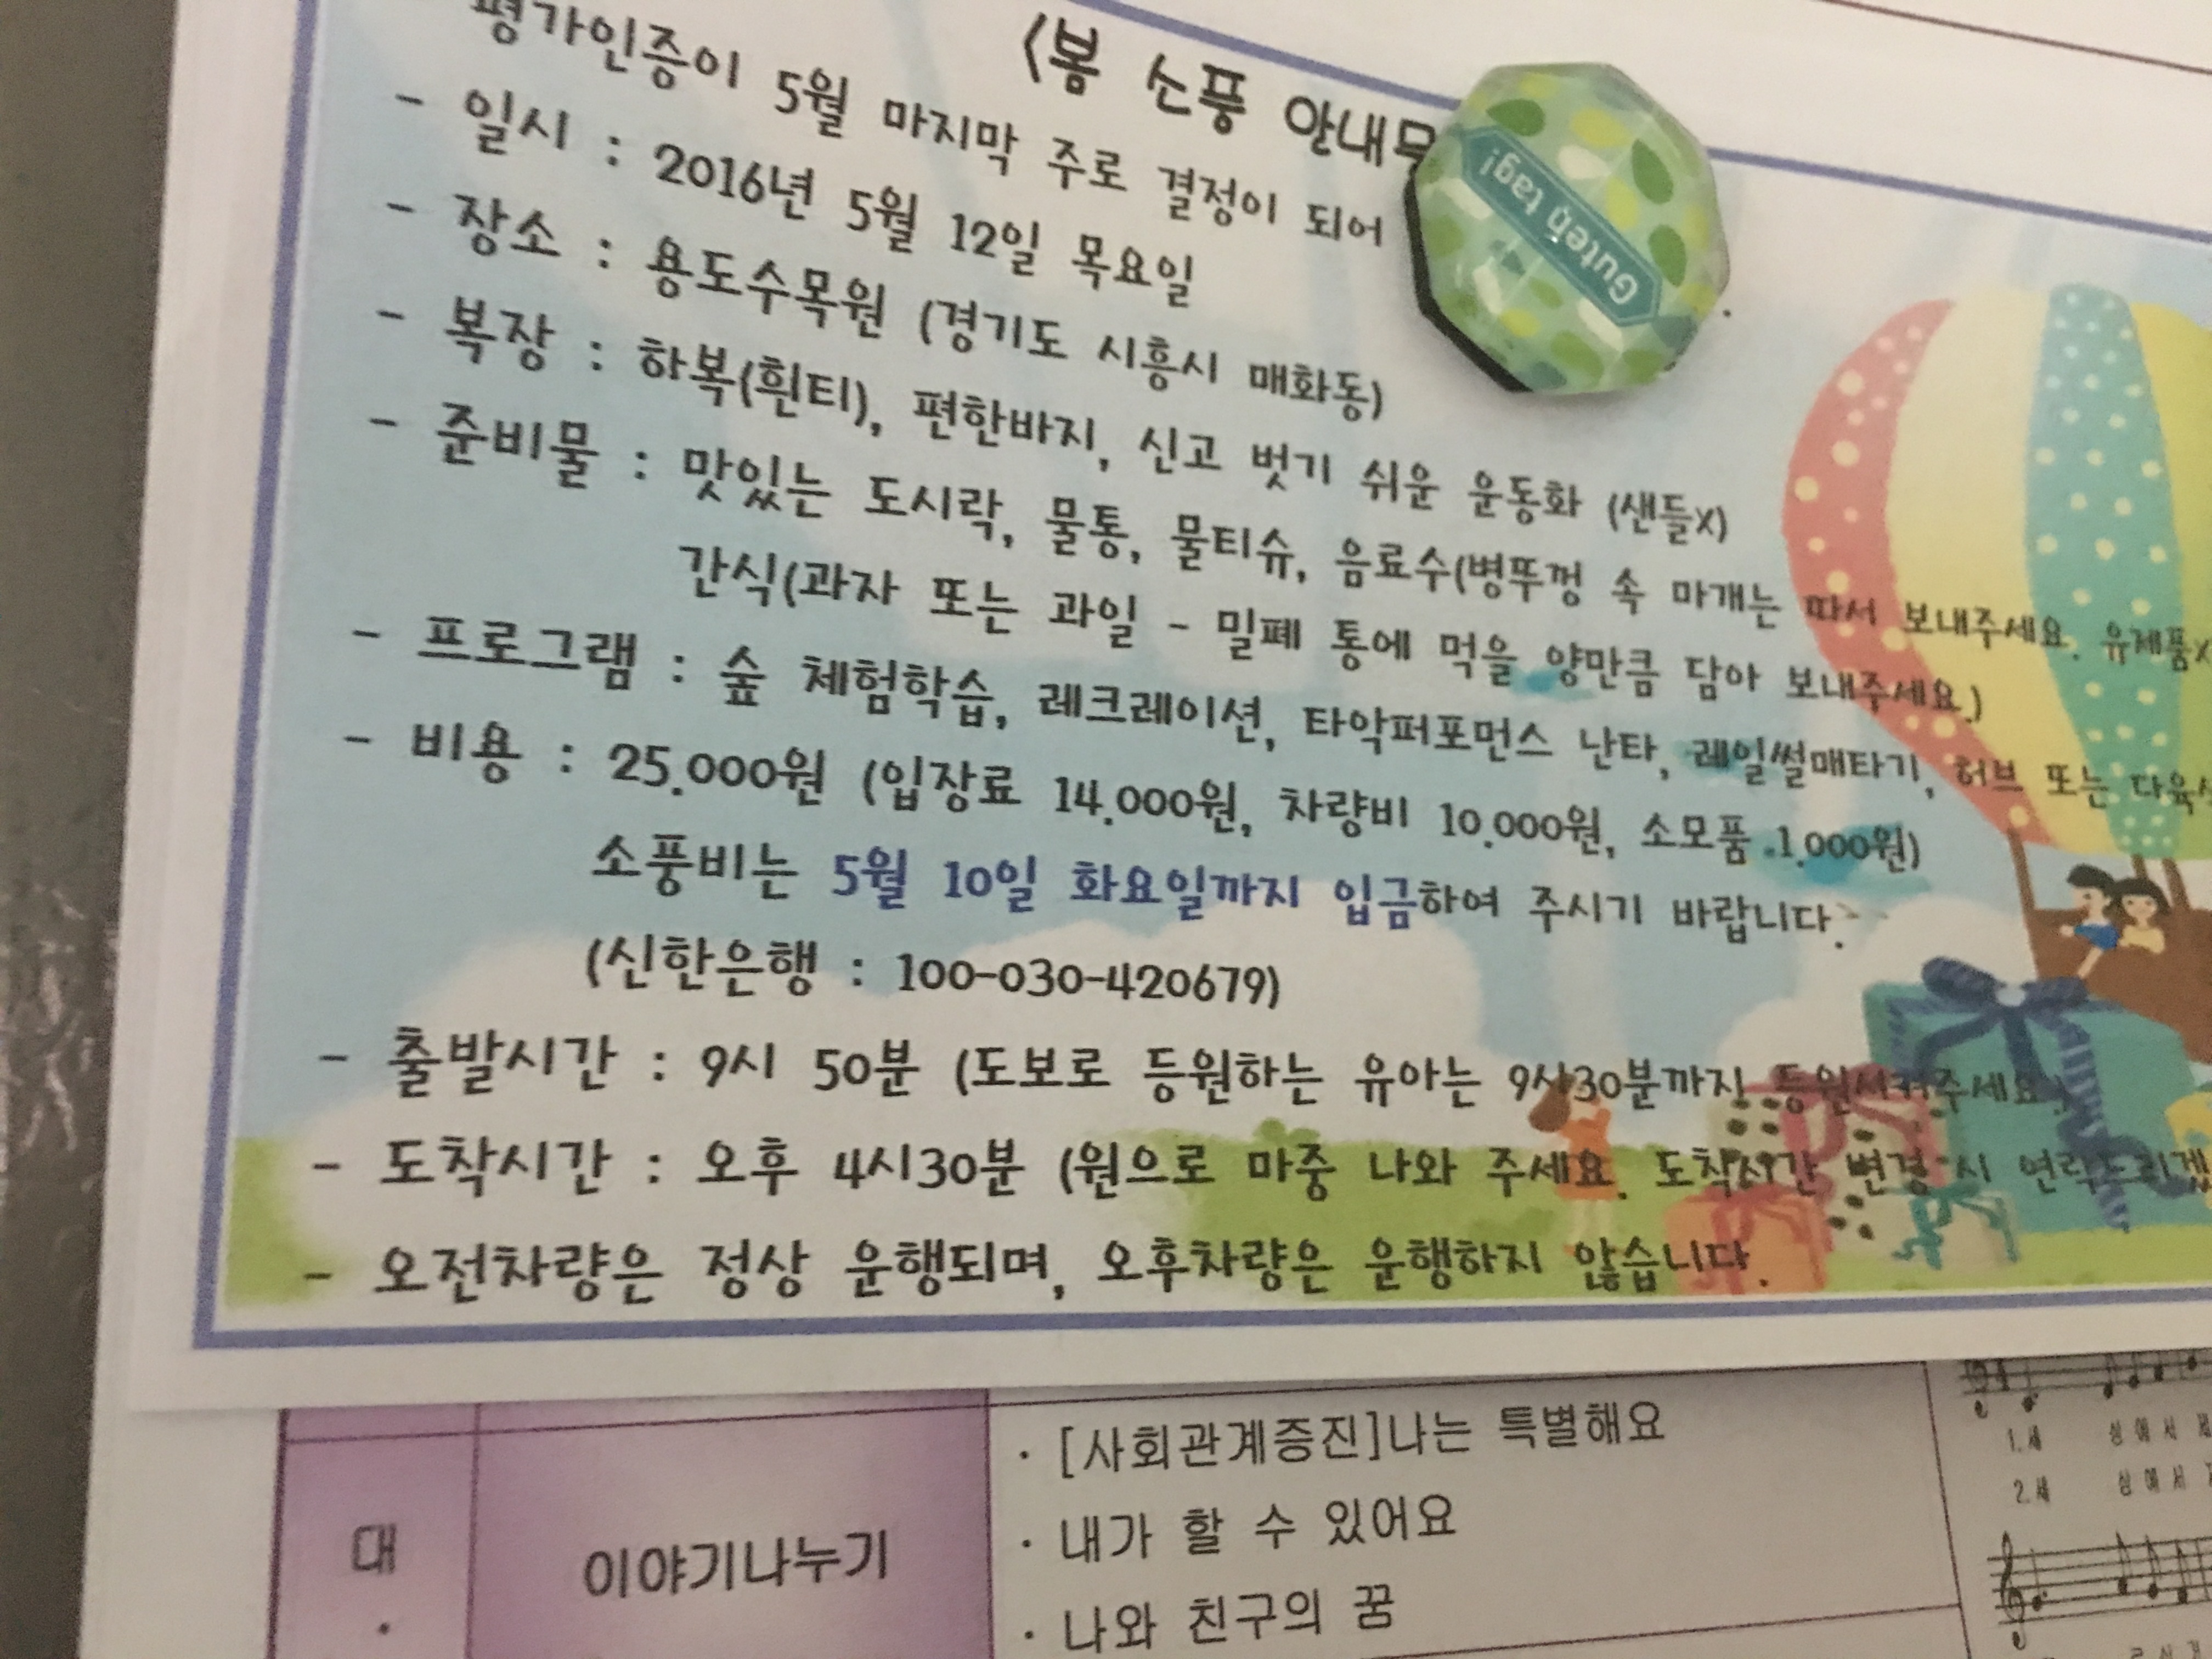 <봄 소풍 안내
평가인증이 5월 마지막 주로 결정이 되어
- 일시 : 2016년 5월 12일 목요일
- 장소 : 용도수목원 (경기도 시흥시 매화동)
- 복장 : 하복(흰티), 편한바지, 신고 벗기 쉬운 운동화 (샌들X)
- 준비물 : 맛있는 도시락, 물통, 물티슈, 음료수(병뚜껑 속 마개는 따서 보내주세요. 유제품X
간식(과자 또는 과일 - 밀폐 통에 먹을 양만큼 담아 보내주세요.)
- 프로그램 : 숲 체험학습, 레크레이션, 타악퍼포먼스 난타, 레일썰매타기, 허브 또는 다육
- 비용 : 25.000원 (입장료 14.000원, 차량비 10.000원, 소모품 1.000원)
소풍비는 5월 10일 화요일까지 입금하여 주시기 바랍니다.
(신한은행 : 100-030-420679)
- 출발시간 : 9시 50분 (도보로 등원하는 유아는 9시30분까지 등원시켜주세요.)
- 도착시간 : 오후 4시30분 (원으로 마중 나와 주세요. 도착시간 변경 시 연락드리겠
- 오전차량은 정상 운행되며, 오후차량은 운행하지 않습니다.
Guten tag!
대
·
이야기나누기
· [사회관계증진]나는 특별해요
· 내가 할 수 있어요
· 나와 친구의 꿈
1.세 상에서
2.세 상에서